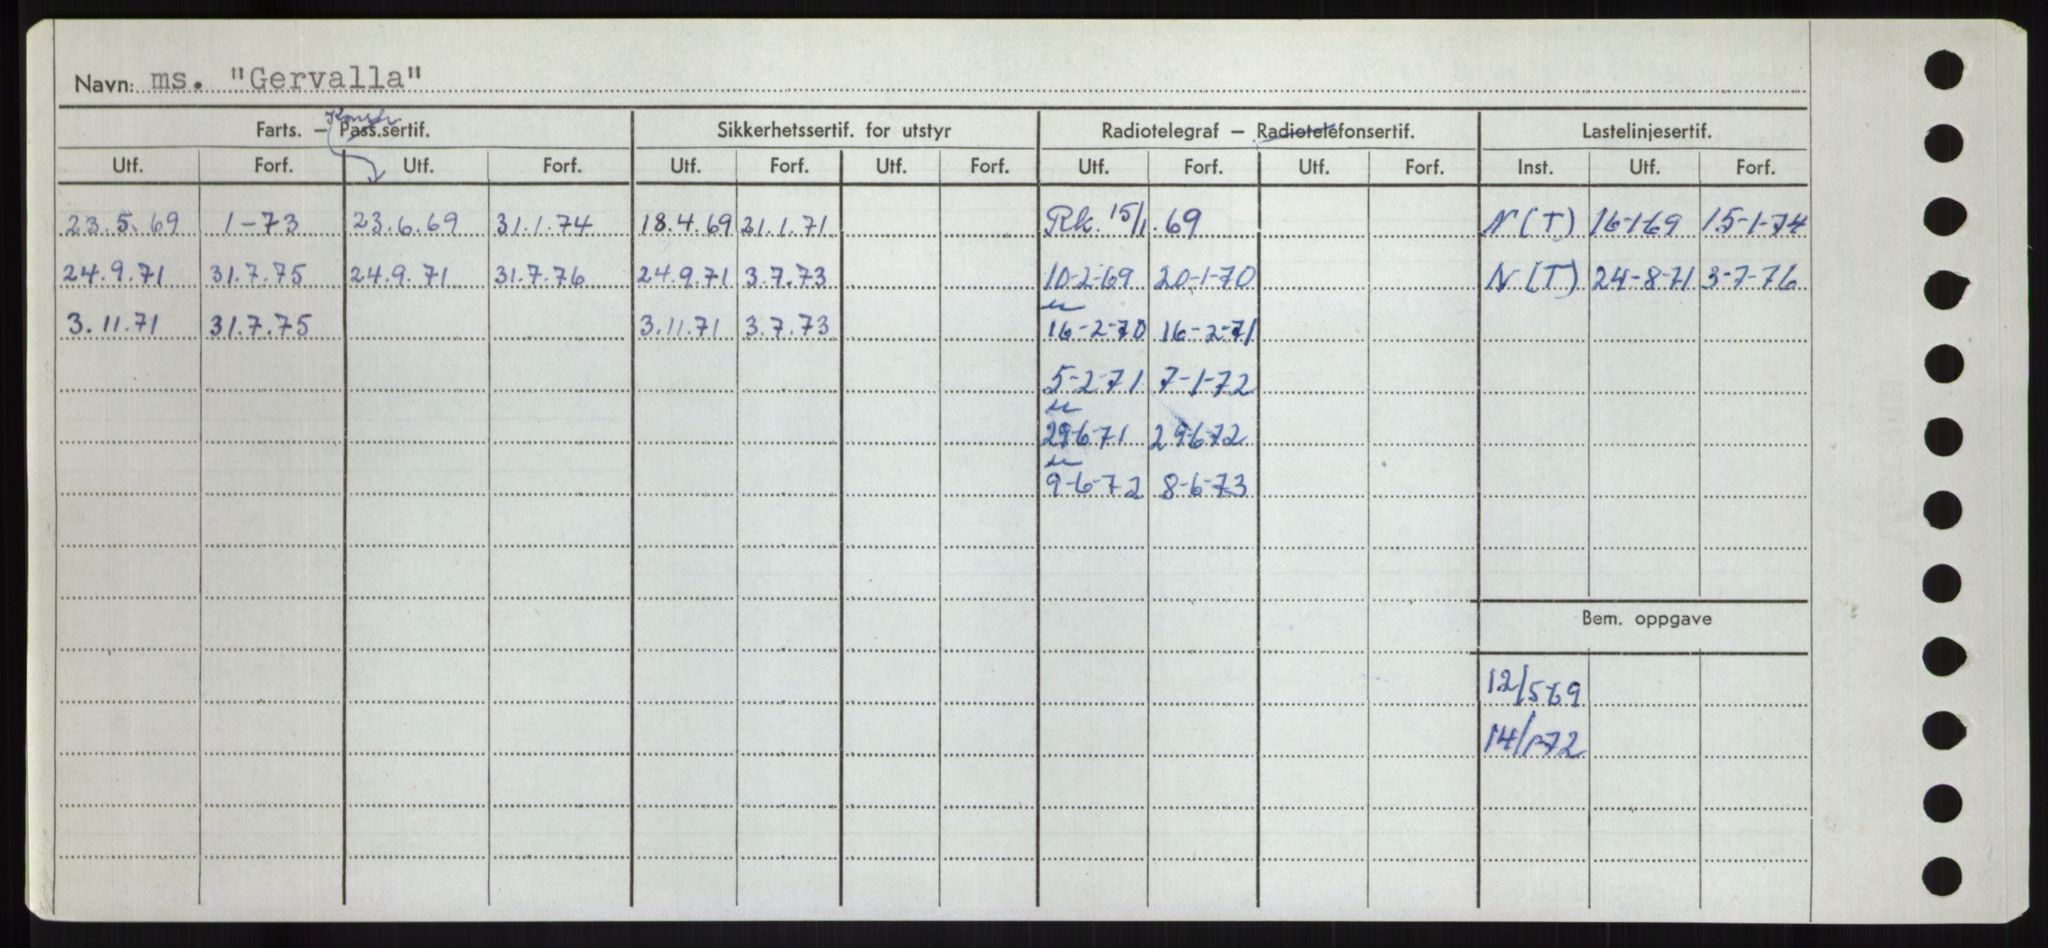 Navn: ms. "Gervalla"
Konstr.
Farts. – Pass.sertif. Sikkerhetssertif. for utstyr Radiotelegraf – Radiotelefonsertif. Lastelinjesertif.
Utf. Forf. Utf. Forf. Utf. Forf. Utf. Forf. Utf. Forf. Utf. Forf. Inst. Utf. Forf.
23.5.69 1-73 23.6.69 31.1.74 18.4.69 21.1.71 Rk. 15/1.69 N(T) 16-1-69 15-1-74
24.9.71 31.7.75 24.9.71 31.7.76 24.9.71 3.7.73 10-2-69 20-1-70 N(T) 24-8-71 3-7-76
3.11.71 31.7.75 3.11.71 3.7.73 16-2-70 16-2-71
5-2-71 7-1-72
29-6-71 29-6-72
9-6-72 8-6-73
Bem. oppgave
12/5-69
14/ 72